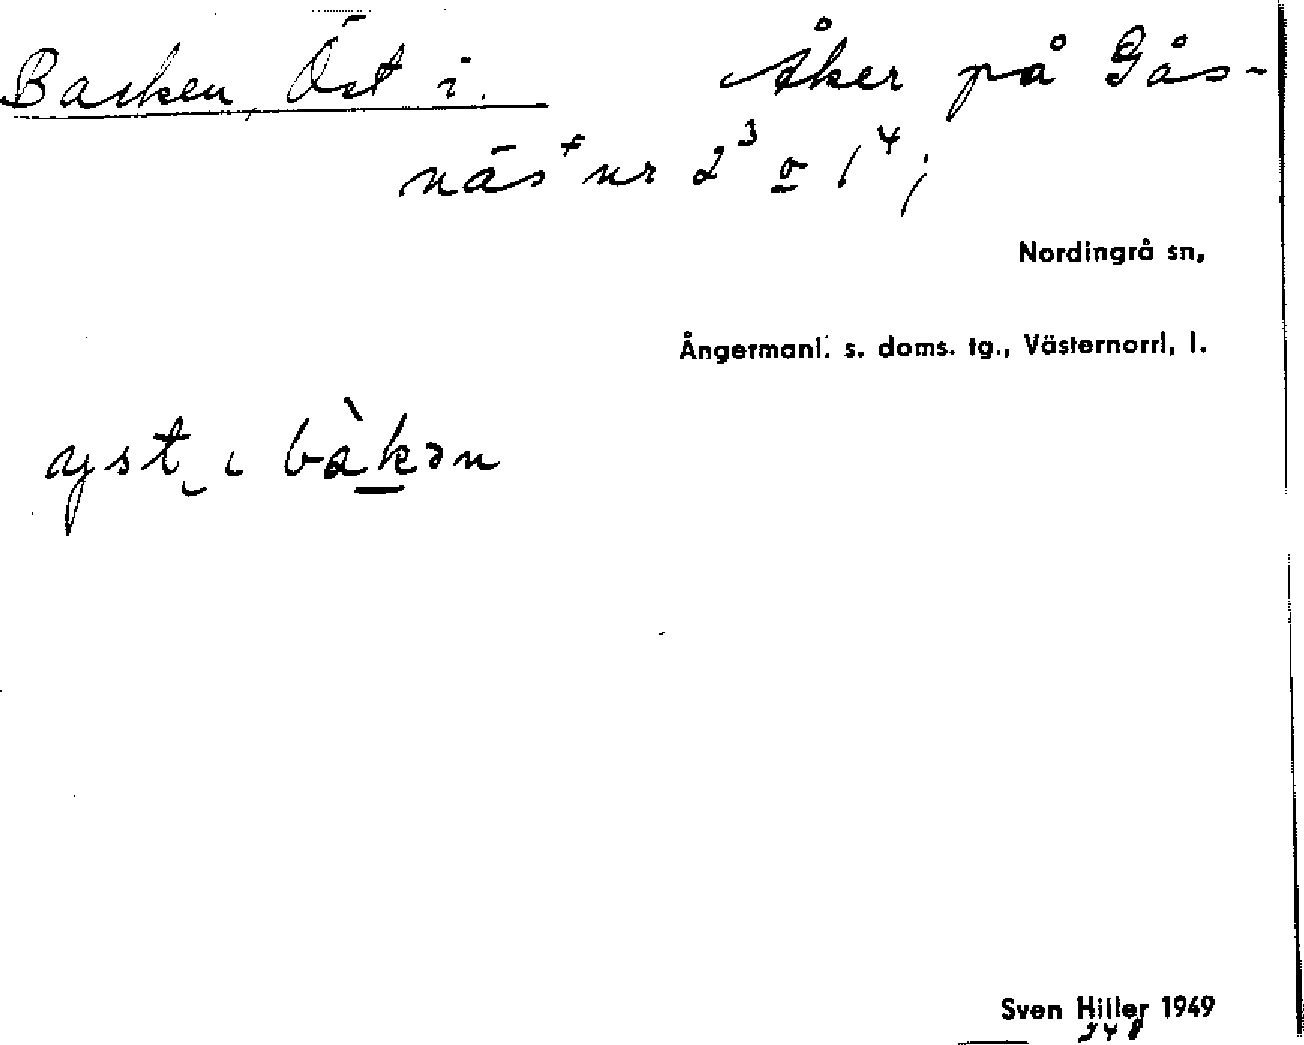 Backen, Öst i. Åker på Gås-
näs + nr 2³ o 1⁴;
Nordingrå sn,
Ångermanl. s. doms. tg., Västernorrl, l.
yst i bàkən
Sven Hiller 1949